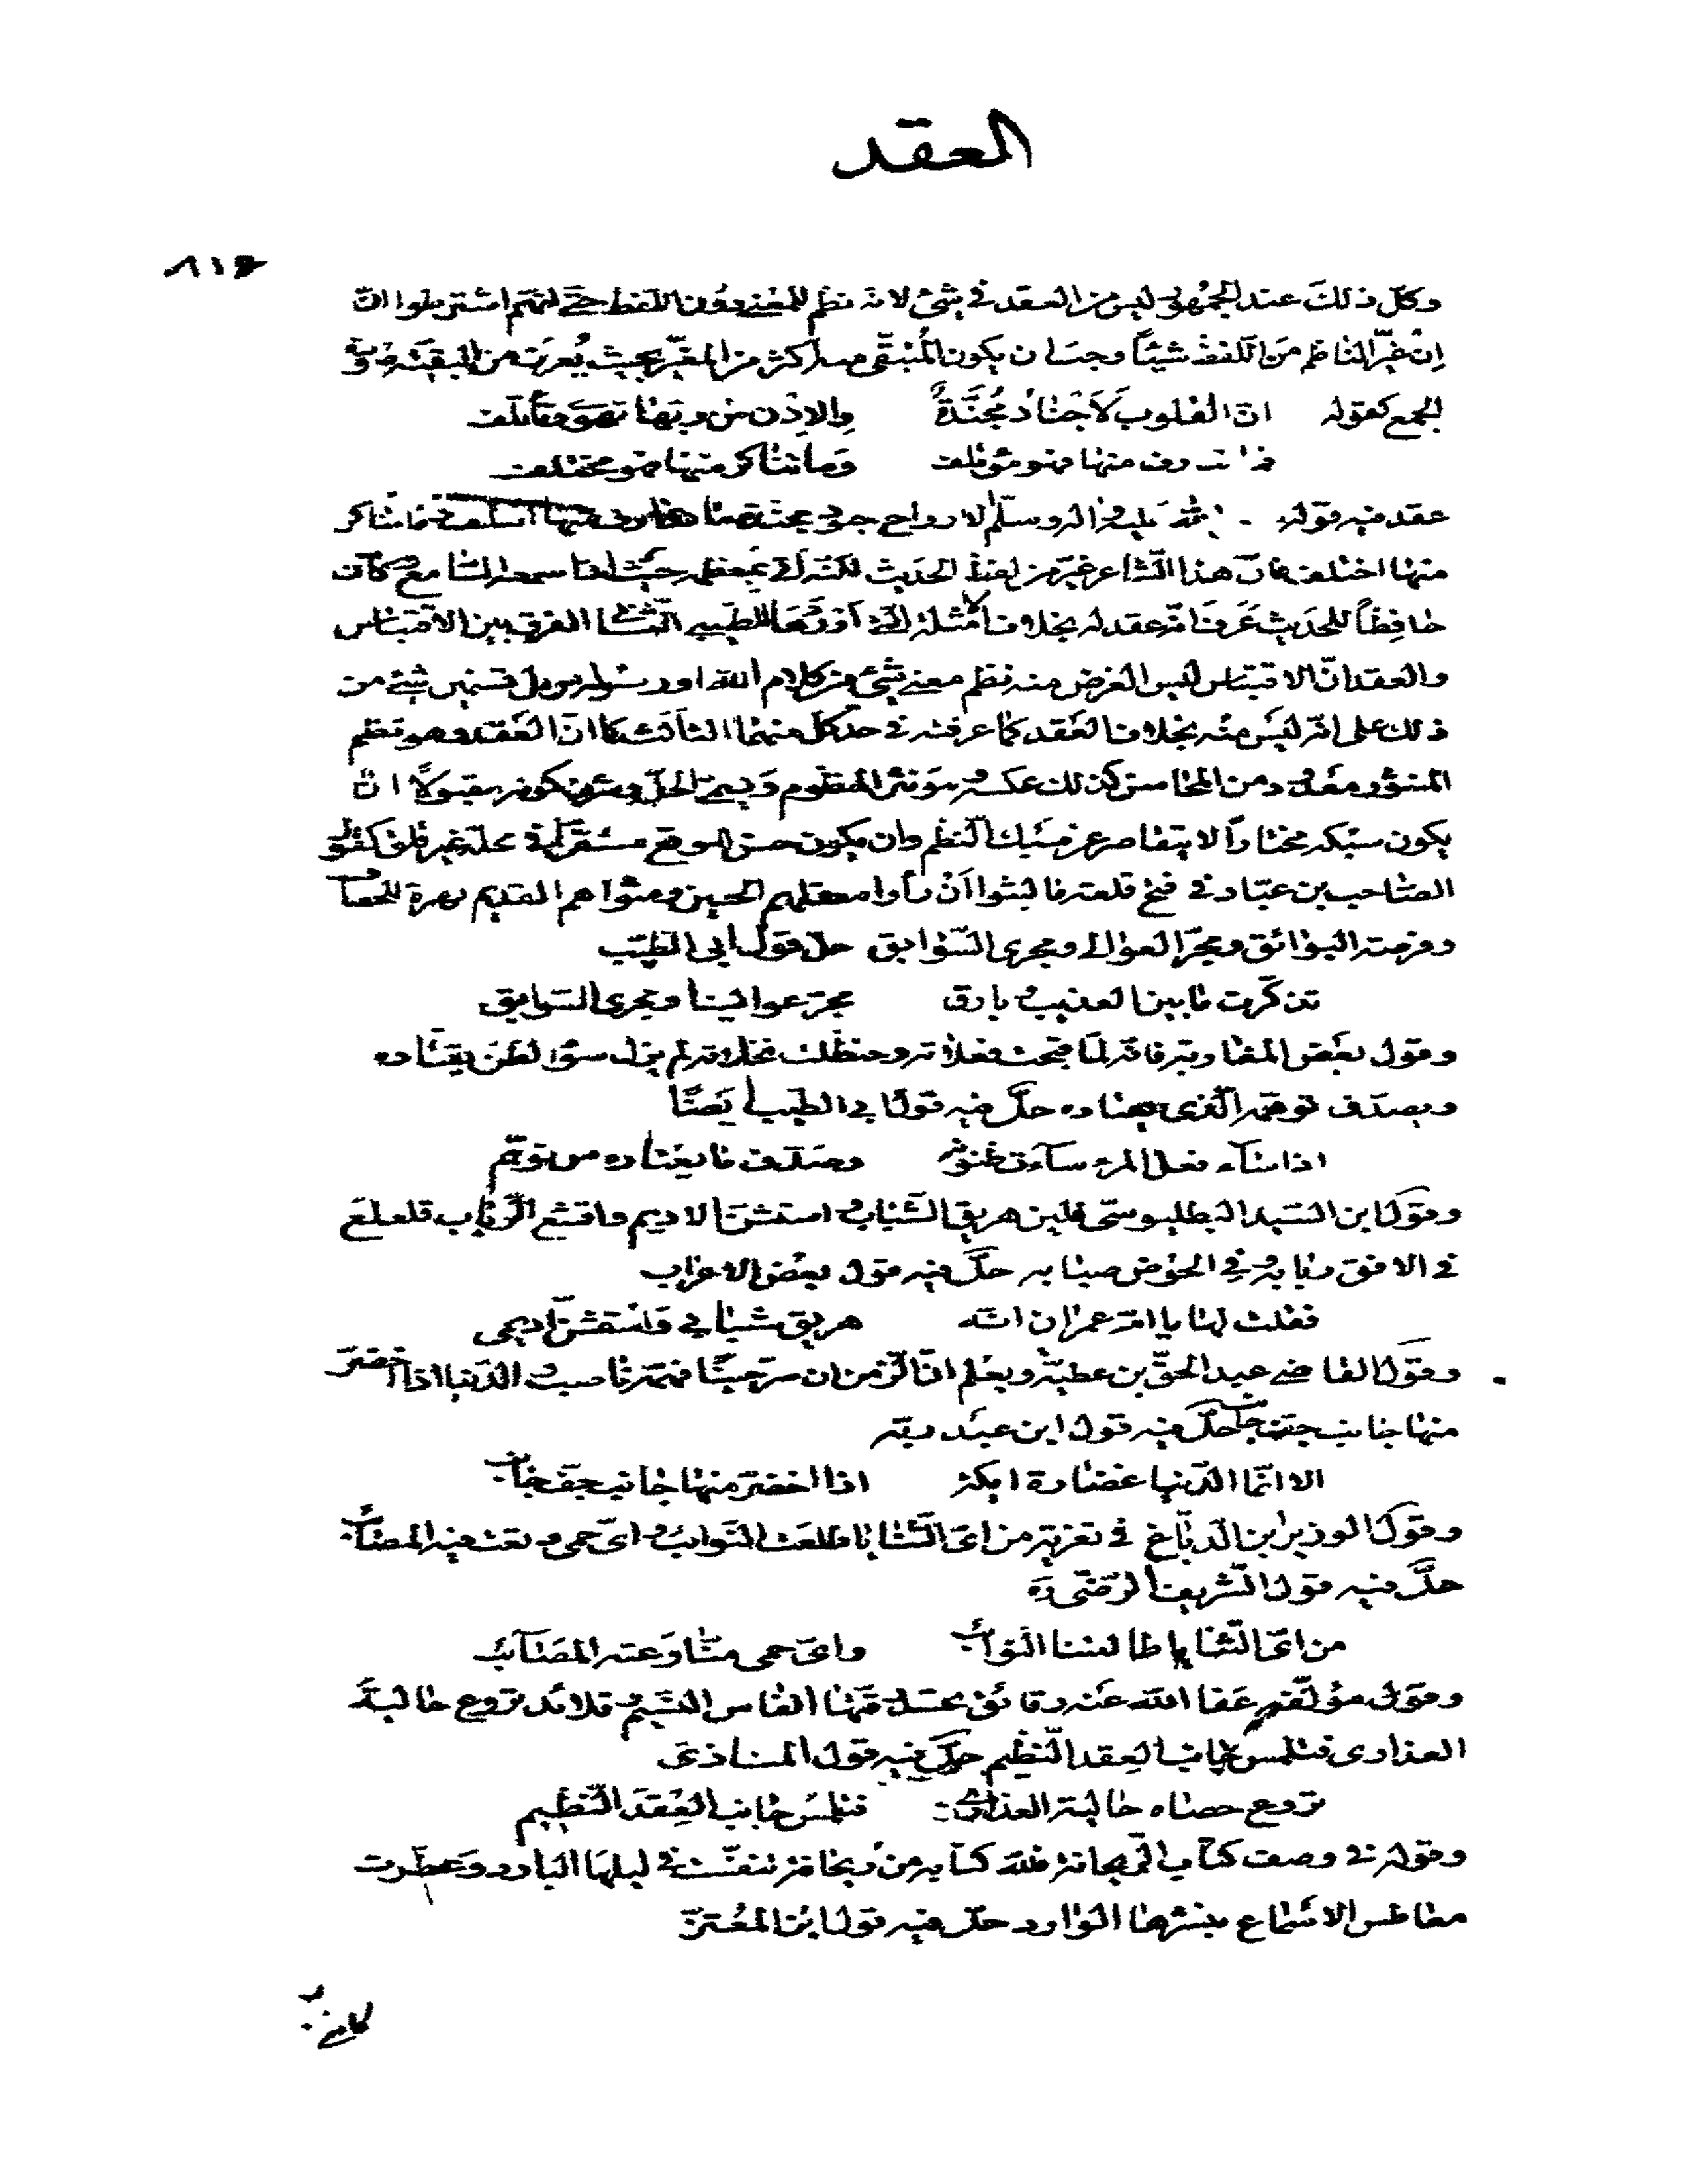 العقد
٨١٤
وكلّ ذلك عند الجمهور ليس من العقد في شئ لانه نظم للمعنى دون اللفظ حتى انهم اشترطوا انّ
اِن غيّر الناظم من اللفظ شيئاً وجب ان يكون المُبَقّى اكثر من المغيّر بحيث يُعرف من البقيّة
الجمع كقوله انّ القلوب لَاَجْنادٌ مُجَنَّدةٌ والاذن من ربّها تهوى وتأتلف
فما تعارف منها فهو مؤتلف وما تناكر منها فهو مختلف
عقد فيه قوله صلى الله عليه واله وسلّم الارواح جنود مجنّدة فما تعارف منها ائتلف وما تناكر
منها اختلف فانّ هذا الشاعر غيّر من لفظ الحديث لكنّه اتى بمعظمه حيث اذا سمعه السامع وكان
حافِظاً للحديث عَرفَ انّه عقد له بخلاف الامثلة التي اوردها الطيبي الثاني الفرق بين الاقتباس
والعقد انّ الاقتباس ليس الغرض منه نظم معنى شئ من كلام الله او رسوله بل تضمين شئ من
ذلك على انّه ليس منه بخلاف العقد كما عرفته في حد كلّ منهما الثالث كما انّ العقد وهو نظم
المنثور معدود من المحاسن كذلك عكسه وهو نثر المنظوم ويسمّى الحلّ وشرط كونه مقبولاً ان
يكون سبكه مختاراً لا يتقاصر عن سبك النظم وان يكون حسن الموقع مستقرّاً في محلّه غير قلق كقول
الصاحب بن عبّاد في فتح قلعة فما لبثوا اَنْ رأوا معقلهم الحصين ومثواهم القديم نهزة
وفرصة البوائق ومجرّ العوالي ومجرى السّوابق حلّ قول ابي الطيّب
تذكّرت ما بين العذيب وبارق مجرّ عوالينا ومجرى السّوابق
وقول بعض المغاربة فانّه لمّا قبحت فعلاته وحنظلت نخلاته لم يزل سوء الظنّ يقتاده
ويصدّق توهّمه الّذي يعتاده حلّ فيه قول ابي الطيّب ايضاً
اذا ساء فعل المرء ساءت ظنونه وصدّق ما يعتاده من توهّم
وقول ابن السّيد البطليوسيّ فلين هريق الشّباب واستشنّ الاديم واقشع الرّباب فلعلّ
في الافق ربابه وفي الحوض صبابه حلّ فيه قول بعض الاعراب
فقلت لها يا امّ عمران انّه هريق شبابي واستشنّ اديمي
وقول القاضي عبد الحقّ بن عطيّة ويعلم انّ الزّمن ان سرّ حيناً فهمّه ناصب والدّنيا اذا اخضرّ
منها جانب جفّ جانب حلّ فيه قول ابن عبد ربّه
الا انّما الدّنيا غضارة ايكة اذا اخضرّ منها جانب جفّ جانب
وقول الوزير ابن الدبّاغ في تعزية من ايّ الثّنايا طلعت النّوايب واىّ حمى رتعت فيه المصائب
حلّ فيه قول الشّريف الرّضىّ ره
من اىّ الثّنايا طالعتنا النّوائب واىّ حمى منّا رعته المصائب
وقول مؤلّفه عفا الله عنه رقائق تحسد رقّتها انفاس النّسيم وقلائد تروع حالية
العذارى فتلمس جانب العقد النّظيم حلّ فيه قول المنازي
تروع حصاه حالية العذارى فتلمس جانب العِقد النّظيم
وقوله في وصف كتاب الرّيحانة فلله كتابه من ريحانة تنفّست في ليلها البارد وعطّرت
معاطس الاسماع بنشرها الوارد حلّ فيه قول ابن المُعتزّ